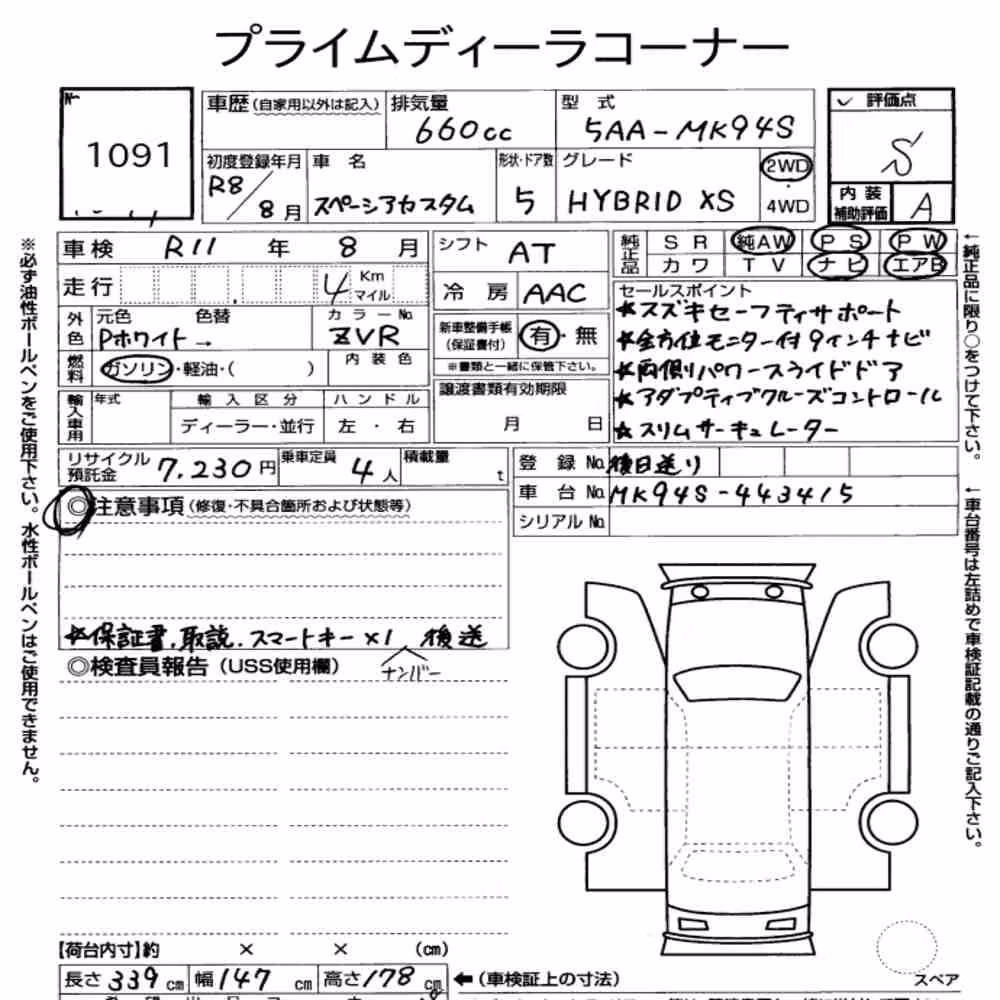 プライムディーラコーナー
No.
1091
車歴(自家用以外は記入)
排気量
660cc
型 式
5AA-MK94S
評価点
S
初度登録年月
R8/8月
車 名
スペーシアカスタム
形状・ドア数
5
グレード
HYBRID XS
2WD
・
4WD
内装
補助評価
A
車検 R11 年 8 月
シフト AT
純正品
SR 純AW PS PW
カワ TV ナビ エアB
走行 4 Km マイル
冷房 AAC
セールスポイント
★スズキセーフティサポート
★全方位モニター付9インチナビ
★両側パワースライドドア
★アダプティブクルーズコントロール
★スリムサーキュレーター
外色
元色 色替 カラーNo.
Pホワイト→ ZVR
新車整備手帳
(保証書付)
有・無
※書類と一緒に保管下さい。
燃料
ガソリン・軽油・( )
内装色
譲渡書類有効期限
月 日
輸入車用
年式
輸入区分
ディーラー・並行
ハンドル
左・右
リサイクル
預託金
7.230円
乗車定員
4人
積載量
t
登録No. 後日送り
車台No. MK94S-443415
シリアルNo.
◎注意事項(修復・不具合箇所および状態等)
★保証書.取説.スマートキー×1 後送
ナンバー
◎検査員報告(USS使用欄)
【荷台内寸】約 × × (cm)
長さ339cm 幅147cm 高さ178cm
←(車検証上の寸法)
スペア
※必ず油性ボールペンをご使用下さい。水性ボールペンはご使用できません。
←純正品に限り○をつけて下さい。
←車台番号は左詰めで車検証記載の通りご記入下さい。